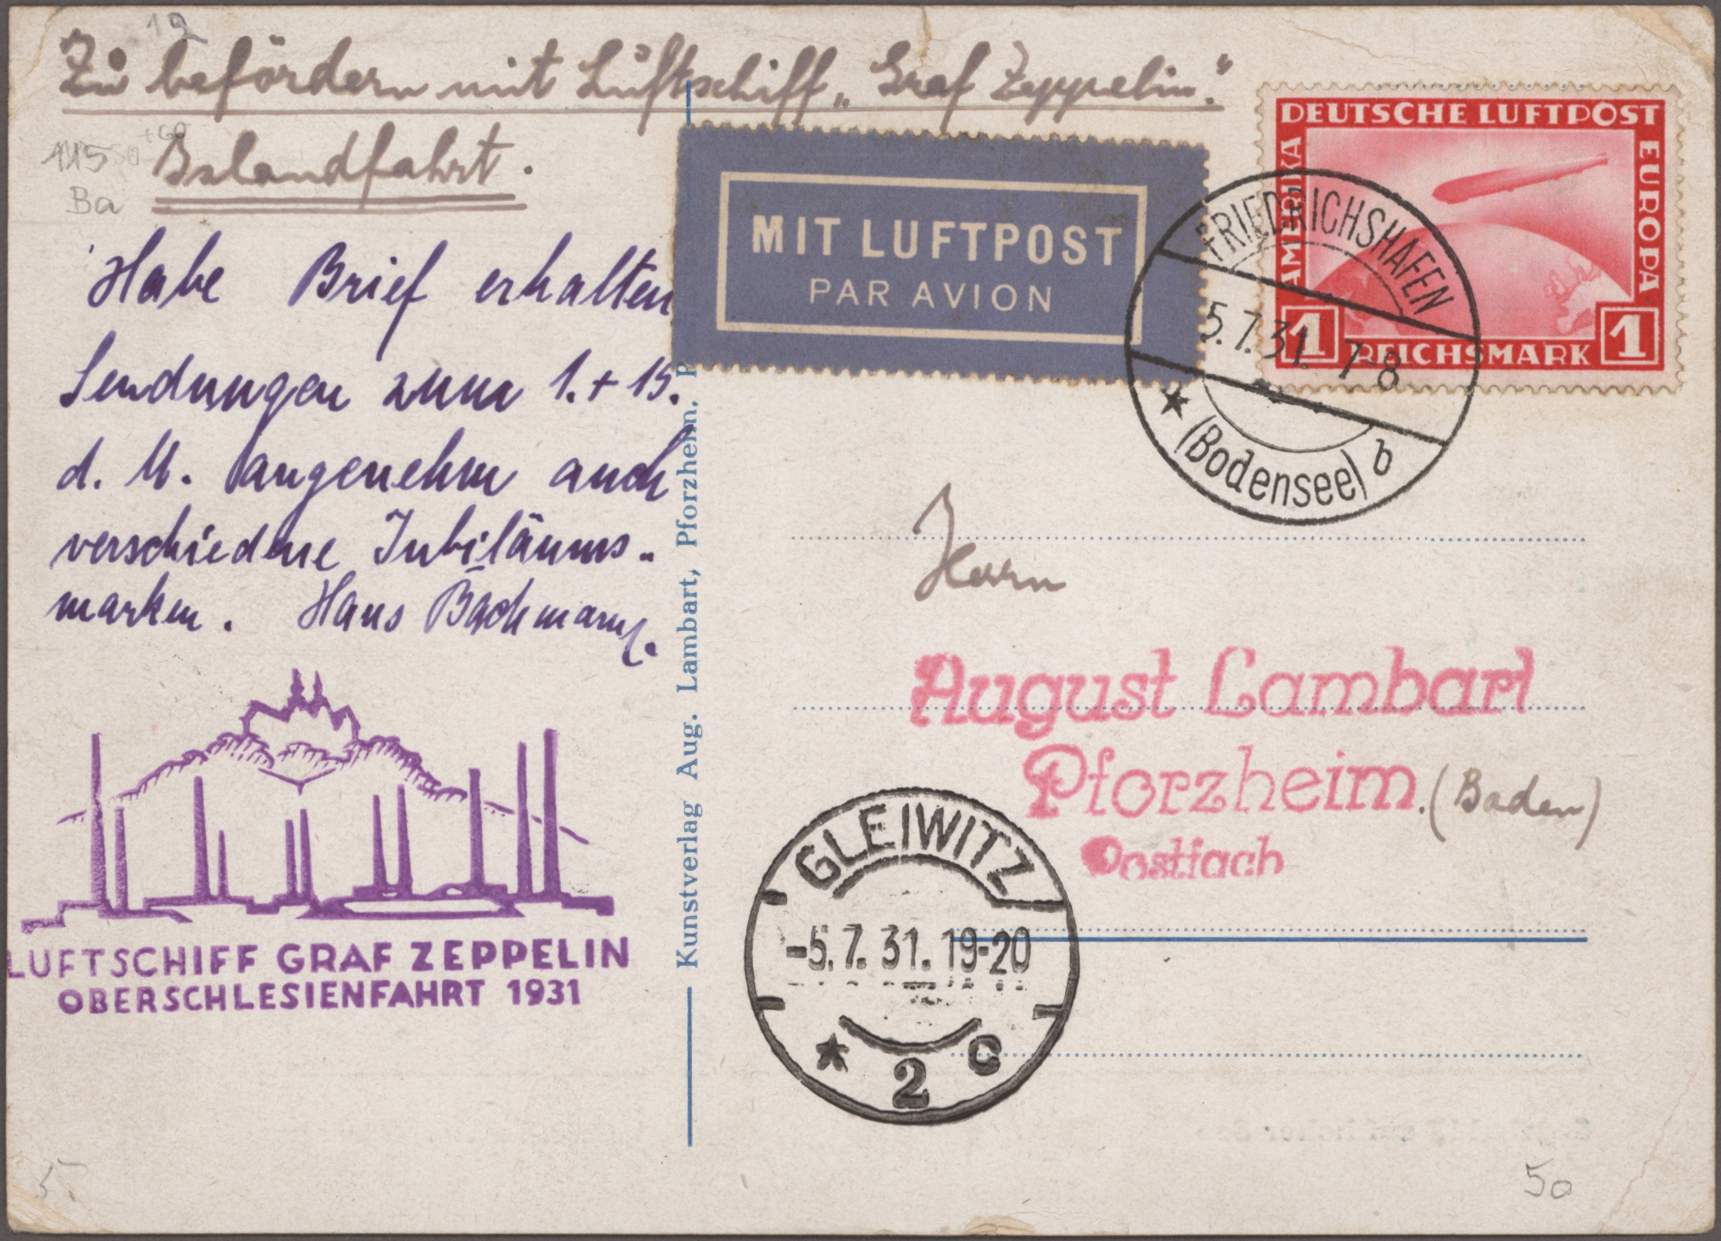 Zu befördern mit Luftschiff „Graf Zeppelin".
Islandfahrt.
115
Ba
Habe Brief erhalten
Sendungen zum 1. + 15.
d. M. angenehm auch
verschiedene Jubiläums-
marken. Hans Bachmann.
LUFTSCHIFF GRAF ZEPPELIN
OBERSCHLESIENFAHRT 1931
Kunstverlag Aug. Lambart, Pforzheim. P
MIT LUFTPOST
PAR AVION
DEUTSCHE LUFTPOST
AMERIKA
EUROPA
1 REICHSMARK 1
FRIEDRICHSHAFEN
5.7.31. 7-8
(Bodensee) b
Herrn
August Lambart
Pforzheim. (Baden)
Postfach
GLEIWITZ
-5.7.31.19-20
* 2 c
50